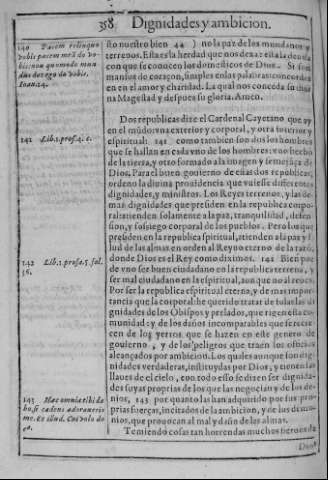 358 Dignidades y ambicion.
140 Pacem relinquo
vobis pacem meã do vo-
bis: non quomodo mun
dus dat ego do vobis.
Ioan. 14.
141 Lib. 1. pros. 4. c.
142 Lib. 1. prosa. 5. fol.
36.
143 Hæc omnia tibi da
bo, si cadens adoraueris
me. Et illud.
sto nuestro bien 44) no la paz de los mundanos y
terrenos. Esta es la herdad que nos dexa: esta la deuisa
con que se conocen los domesticos de Dios. Si somos
mansos de coraçon, simples en las palabras: concordes
en el amor y charidad. La qual nos conceda su diuina
Magestad y despues su gloria. Amen.
Dos republicas dize el Cardenal Cayetano que ay
en el mũdo: vna exterior y corporal, y otra interior y
espiritual: 141 como tambien son dos los hombres
que se hallan en cada vno de los hombres: vno hecho
de la tierra, y otro formado a la imagen y semejãça de
Dios. Para el buen gouierno de estas dos republicas,
ordeno la diuina prouidencia que vuiesse differentes
dignidades, y ministros. Los Reyes terrenos, y las de
mas dignidades que presiden en la republica corpo-
ral: atienden solamente a la paz, tranquilidad, defen
sion, y sossiego corporal de los pueblos. Pero los que
presiden en la republica spiritual, atienden a la paz y sa
lud de las almas en orden al Reyno eterno de la
donde Dios es el Rey como diximos. 142 Bien puede
de vno ser buen ciudadano en la republica terrena, y
ser mal ciudadano en la espiritual, aunque no al reues.
Por ser la republica espiritual eterna, y de mas impor
tancia que la corporal: he querido tratar de solas las di
gnidades de los Obispos y prelados, que rigen esta co
munidad: y de los daños incomparables que se recre-
cen de los yerros que se hazen en este genero de
gouierno, y de los peligros que traen los officios
alcançados por ambicion. Los quales aunque son dig-
nidades verdaderas, instituydas por Dios, y tienen las
llaues del cielo, con todo esso se dizen ser dignida-
des suyas proprias de los que las negocian y de los de-
nios, 143 por quanto las han adquirido por sus pro-
prias fuerças, incitados de la ambicion, y de los demo-
nios, que prouocan al mal y daño de las almas.
Temiendo cosas tan horrendas muchos sieruos de
Dios